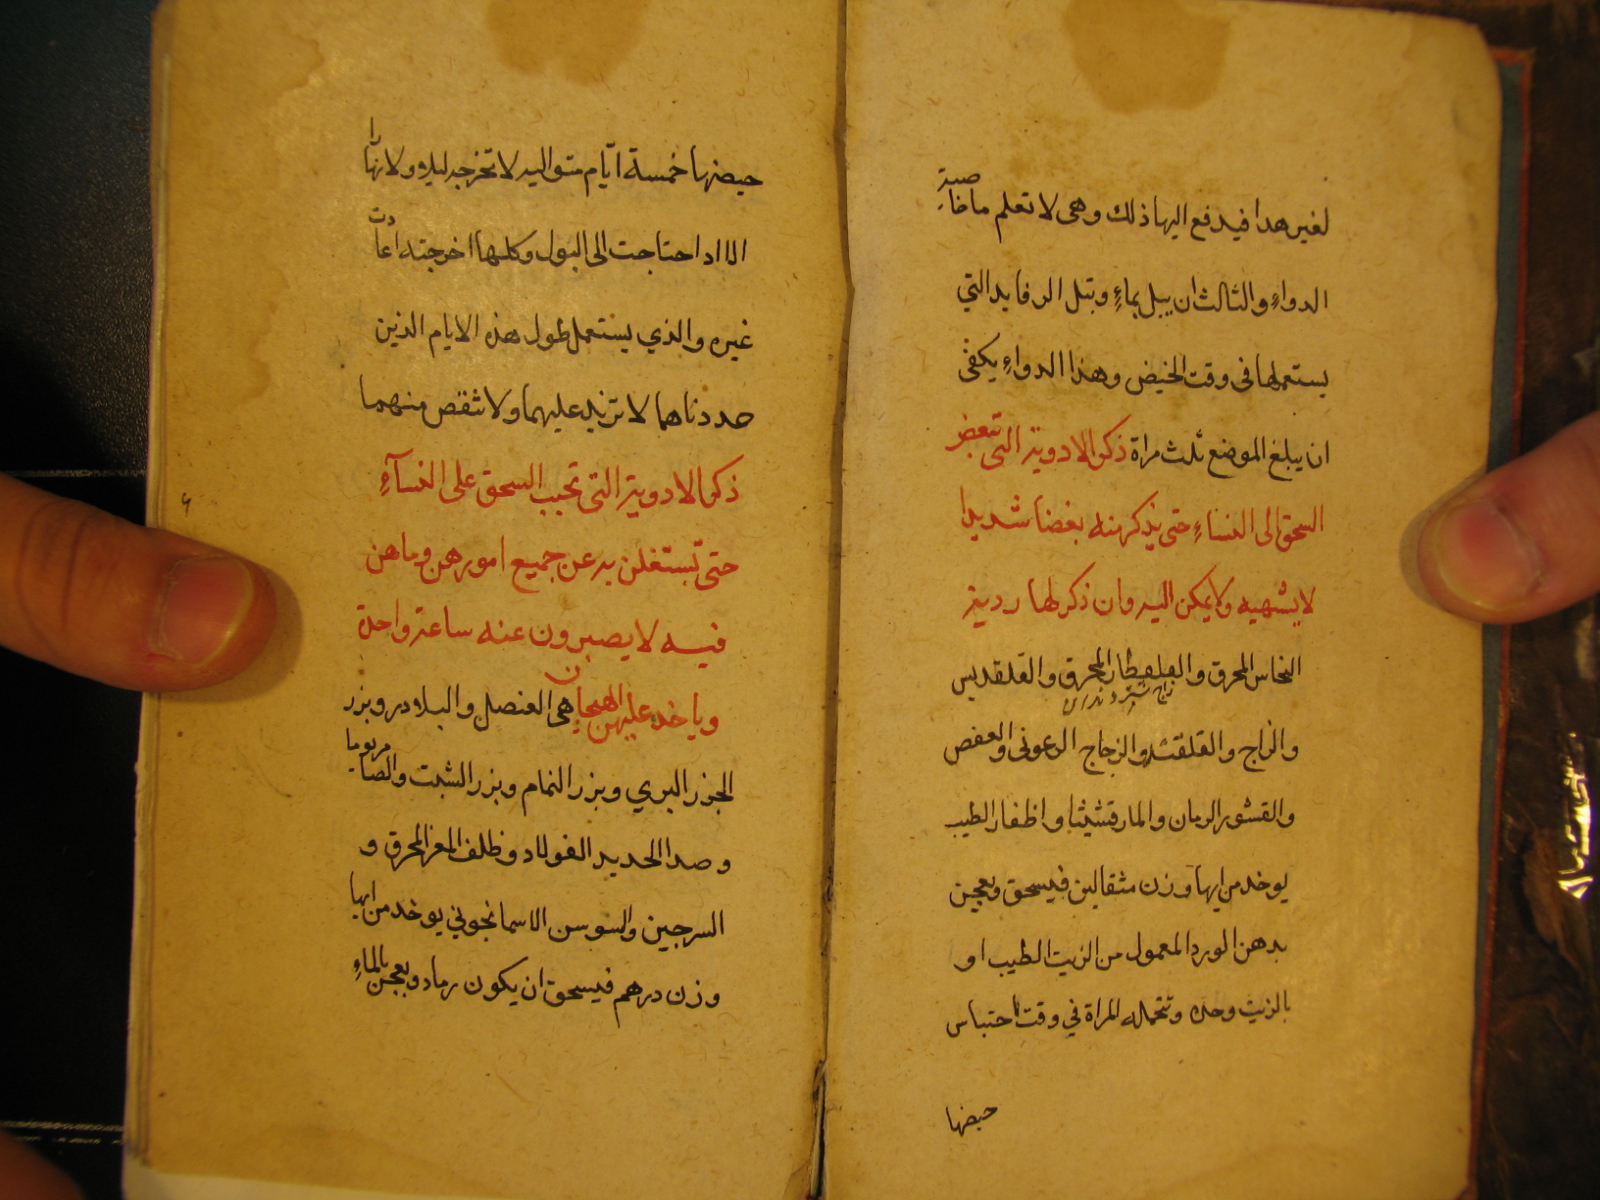 لغير هدا فيدفع اليها ذلك وهى لا تعلم ما خاصية
الدواء والثالث ان يبل بماء وتبل الرفايد التي
يستعملها فى وقت الحيض وهذا الدواء يكفى
ان يبلغ الموضع ثلث مراة ذكر الادوية التى تبعض
السحق الى النساء حتى يذكرهنه بغضا شديدا
لا يشهيه ولا يمكن اليه وان ذكر لها ردية
النحاس المحرق والقلقطار المحرق والقلقديس
والزاج والقلقند والزجاج الرعونى والعفص
والقشور الرمان والمارقشيثا واظفار الطيب
يوخد من ايها وزن مثقالين فيسحق ويعجن
بدهن الورد المعمول من الزيت الطيب او
بالزيت وحده وتتحمله المراة في وقت احتباس
حيضها
حيضها خمسة ايّام متواليه لا تخرجه ليلا ولا نهارا
الا اد احتاجت الى البول وكلها اخرجته اعادت
غيره والذي يستعمل طول هذه الايام الذين
حددناها لا تزيد عليهما ولا تنقص منهما
ذكر الادوية التى تحبب السحق على النسآء
حتى تستغلن به عن جميع امورهن وما هن
فيه لا يصبرون عنه ساعة واحدة
وياخد عليهن الهيجان هى العنصل والبلادر وبزر
الجزر البري وبزر النمام وبزر الشبت والصامريوما
وصدا الحديد الفولاد وظلف المعز المحرق و
السرجين والسوسن الاسمانجوني يوخد من ايها
وزن درهم فيسحق ان يكون رماد ويعجن بالماء